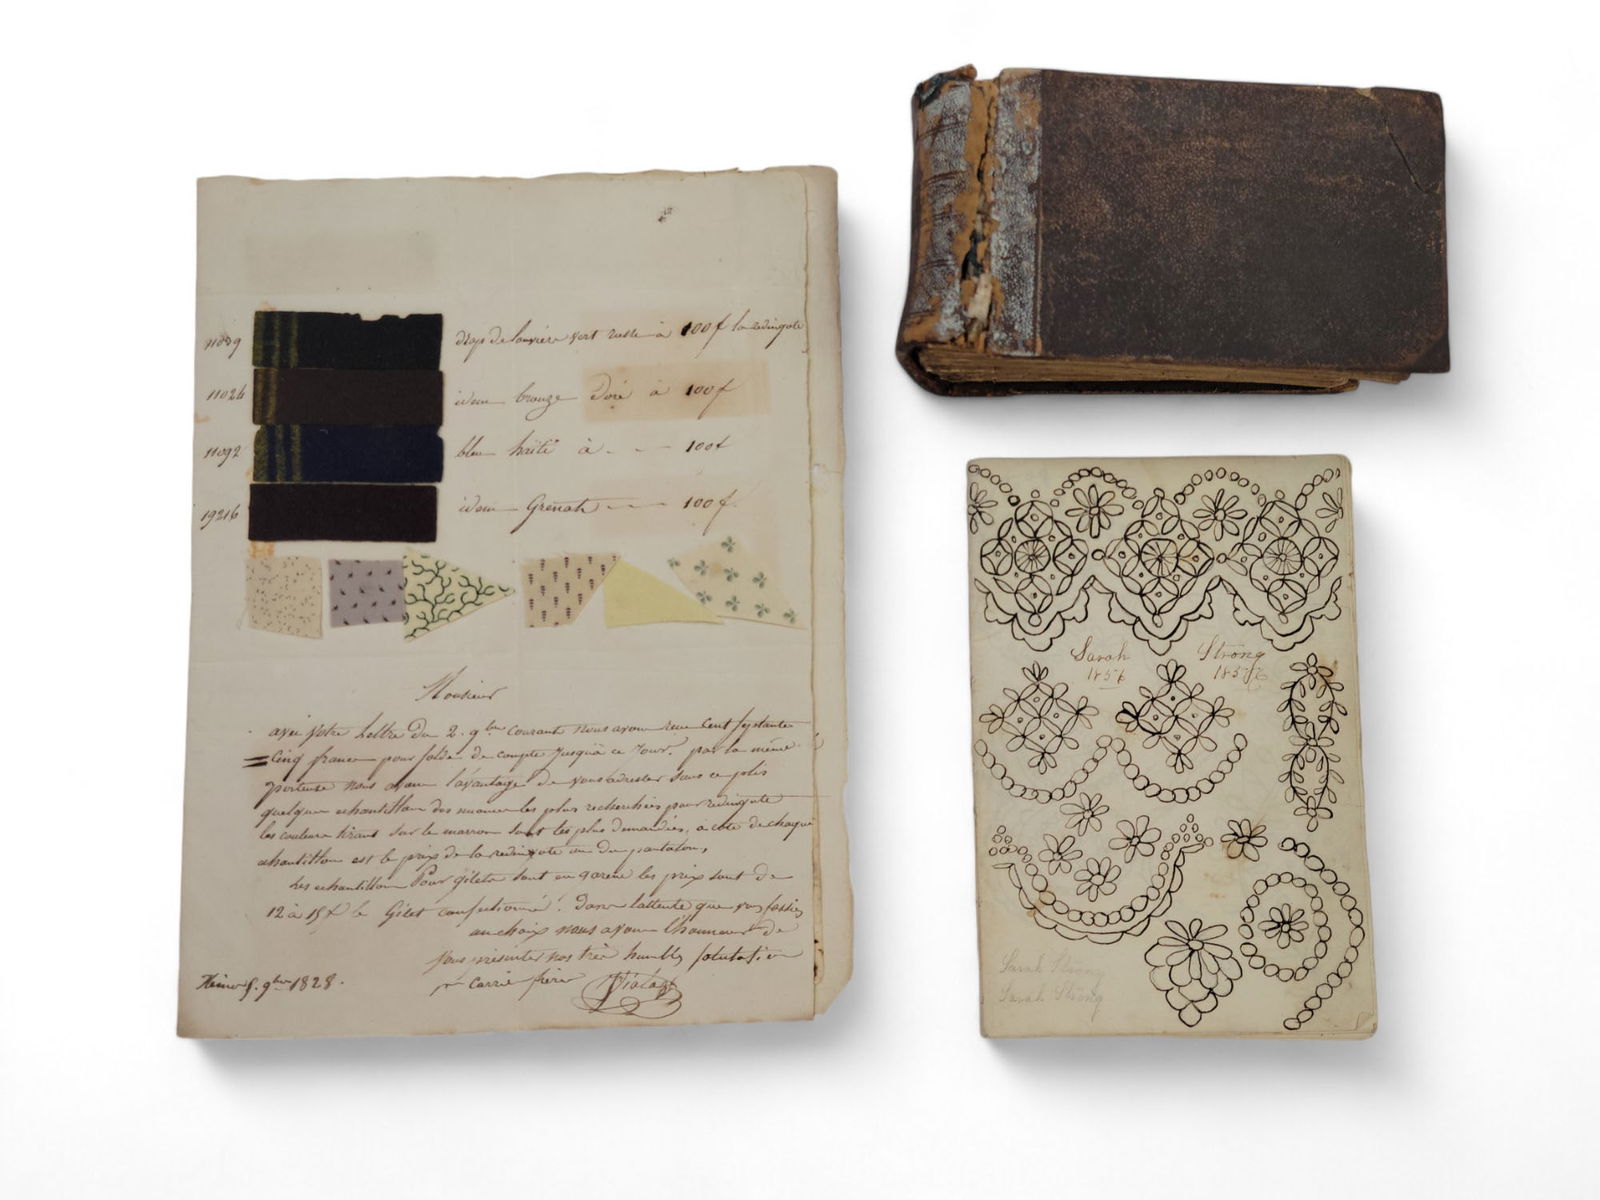 11089 drap de louviers vert russe à 100f la redingote
11026 idem bronze doré à 100f
11092 bleu haïti à - - - 100f
19216 idem Grenat - - - 100f
Monsieur
avec votre Lettre du 2. 9bre courant nous avons recu Cent septante
= Cinq francs pour solde de compte jusqu'à ce Jour, par la même
porteuse nous avons l'avantage de vous adresser sous ce plis
quelques echantillons des nuances les plus recherchées pour redingote
les couleurs tirant sur le marron sont les plus demandées, à coté de chaque
echantillon est le prix de la redingote ou du pantalon,
Les echantillons Pour gilets sont en les prix sont de
12 à 15f le Gilet confectionné. Dans l'attente que vous fassiez
un choix nous avons l'honneur de
vous présenter nos très humbles salutations
pr Carrié frère
9bre 1828.
Sarah Strong
1856 1857
Sarah Strong
Sarah Strong